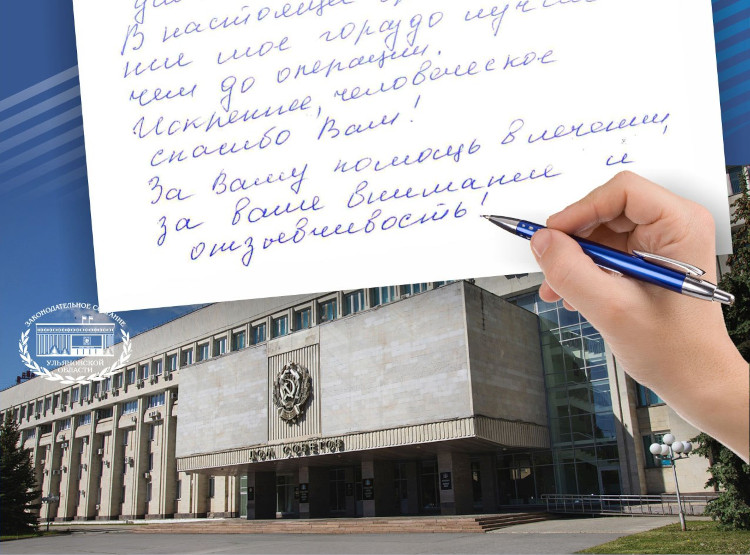 В настоящее
ние мое гораздо лучше
чем до операции.
Искреннее, человеческое
спасибо Вам!
За Вашу помощь в лечении,
за ваше внимание и
отзывчивость!
ЗАКОНОДАТЕЛЬНОЕ СОБРАНИЕ
УЛЬЯНОВСКОЙ
ОБЛАСТИ
ДОМ СОВЕТОВ